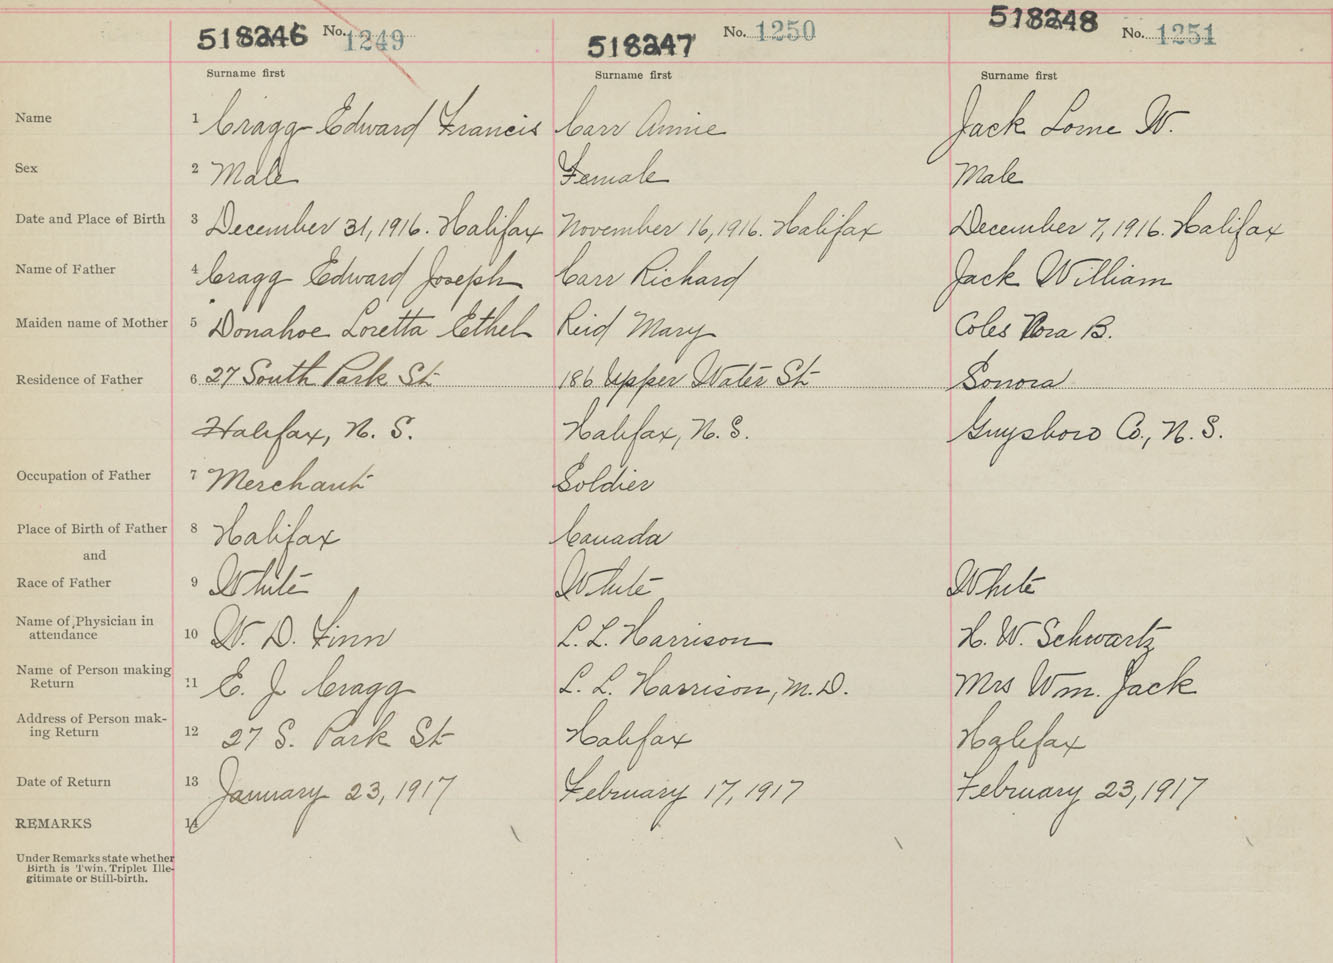 518246 No. 1249 518247 No. 1250 518248 No. 1251
Surname first Surname first Surname first
Name 1 Cragg Edward Francis Carr Annie Jack Lorne W.
Sex 2 Male Female Male
Date and Place of Birth 3 December 31, 1916. Halifax November 16, 1916. Halifax December 7, 1916. Halifax
Name of Father 4 Cragg Edward Joseph Carr Richard Jack William
Maiden name of Mother 5 Donahoe Loretta Ethel Reid Mary Coles Nora B.
Residence of Father 6 27 South Park St 186 Upper Water St Sonora
Halifax, N. S. Halifax, N. S. Guysboro Co., N. S.
Occupation of Father 7 Merchant Soldier
Place of Birth of Father 8 Halifax Canada
and
Race of Father 9 White White White
Name of Physician in
attendance 10 W. D. Finn L. L. Harrison H. W. Schwartz
Name of Person making
Return 11 E. J. Cragg L. L. Harrison, M.D. Mrs Wm. Jack
Address of Person mak-
ing Return 12 27 S. Park St Halifax Halifax
Date of Return 13 January 23, 1917 February 17, 1917 February 23, 1917
REMARKS 14
Under Remarks state whether
Birth is Twin. Triplet Ille-
gitimate or Still-birth.